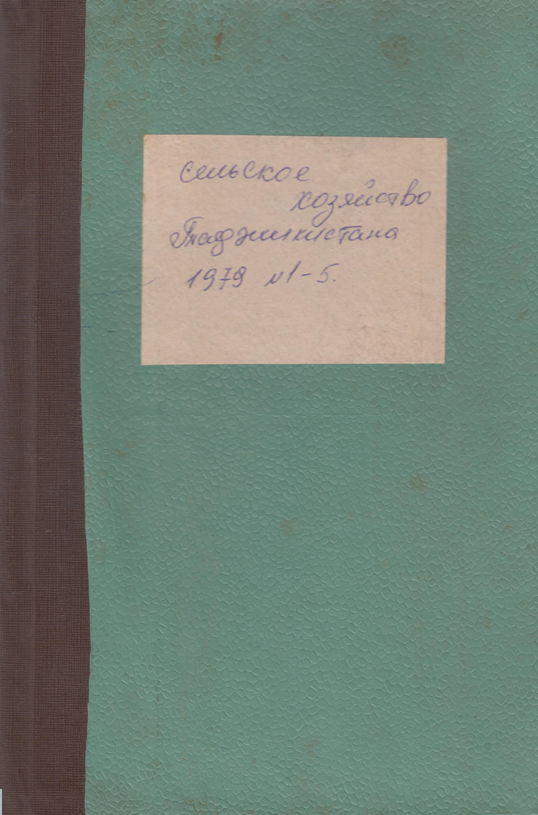 сельское
хозяйство
Таджикистана
1979 N1-5.